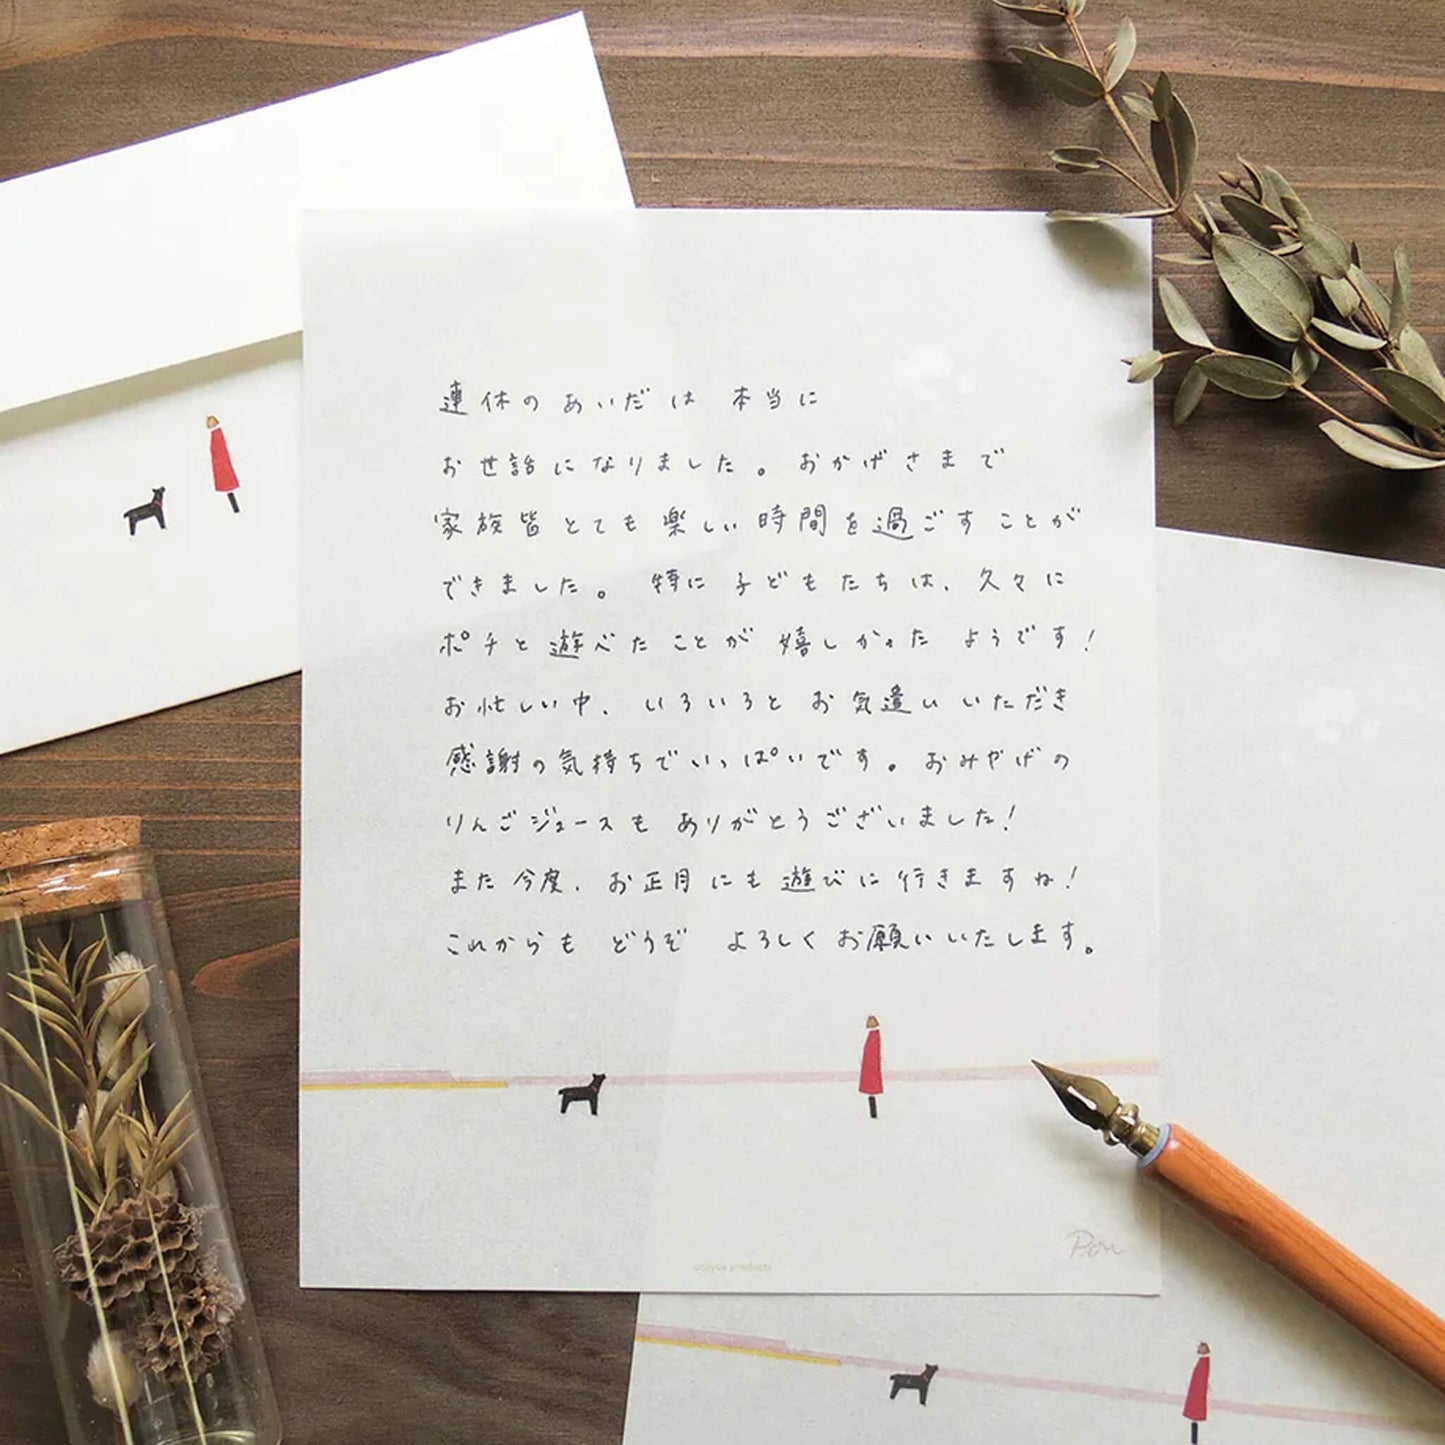 連休のあいだは 本当に
お世話になりました。おかげさまで
家族皆とても楽しい時間を過ごすことが
できました。特に子どもたちは、久々に
ポチと遊べたことが嬉しかったようです!
お忙しい中、いろいろとお気遣いいただき
感謝の気持ちでいっぱいです。おみやげの
りんごジュースもありがとうございました!
また今度、お正月にも遊びに行きますね!
これからも どうぞ よろしくお願いいたします。
products